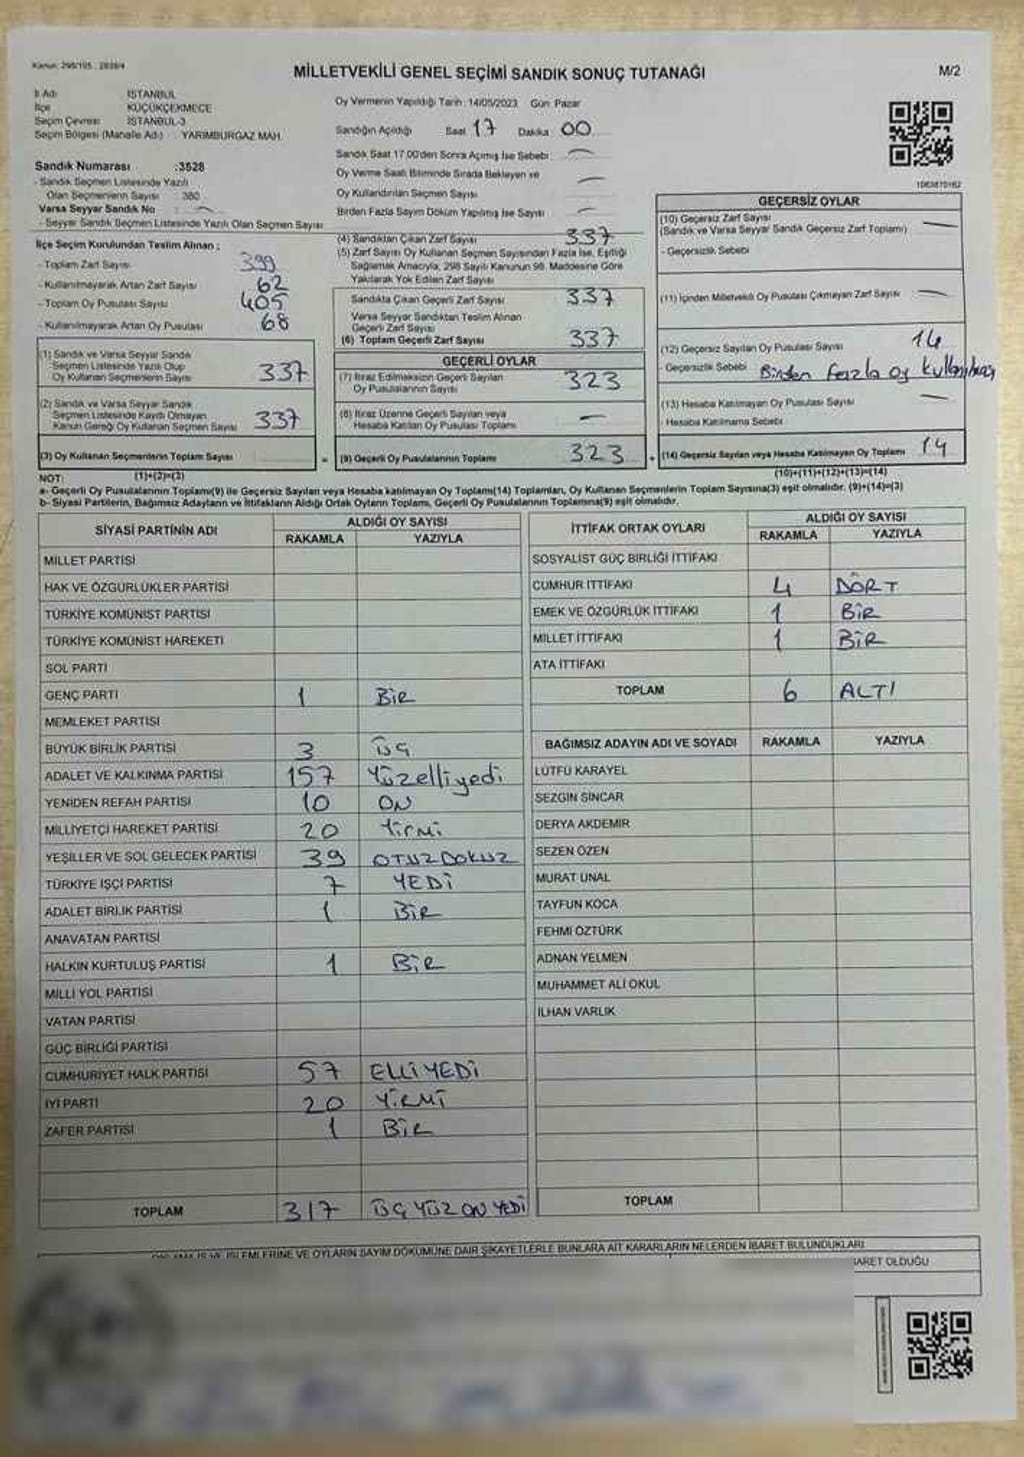 Kanun: 298/105 : 2839/4
MİLLETVEKİLİ GENEL SEÇİMİ SANDIK SONUÇ TUTANAĞI
M/2
İl Adı İSTANBUL
İlçe KÜÇÜKÇEKMECE
Seçim Çevresi İSTANBUL-3
Seçim Bölgesi (Mahalle Adı) : YARIMBURGAZ MAH.
Sandık Numarası :3528
- Sandık Seçmen Listesinde Yazılı
Olan Seçmenlerin Sayısı : 380
Varsa Seyyar Sandık No : —
- Seyyar Sandık Seçmen Listesinde Yazılı Olan Seçmen Sayısı
Oy Vermenin Yapıldığı Tarih :14/05/2023 Gün: Pazar
Sandığın Açıldığı Saat 17 Dakika 00
Sandık Saat 17.00'den Sonra Açılmış İse Sebebi: —
Oy Verme Saati Bitiminde Sırada Bekleyen ve
Oy Kullandırılan Seçmen Sayısı —
Birden Fazla Sayım Döküm Yapılmış İse Sayısı —
İlçe Seçim Kurulundan Teslim Alınan ;
- Toplam Zarf Sayısı 399
- Kullanılmayarak Artan Zarf Sayısı 62
- Toplam Oy Pusulası Sayısı 405
- Kullanılmayarak Artan Oy Pusulası 68
(1) Sandık ve Varsa Seyyar Sandık
Seçmen Listesinde Yazılı Olup
Oy Kullanan Seçmenlerin Sayısı 337
(2) Sandık ve Varsa Seyyar Sandık
Seçmen Listesinde Kayıtlı Olmayan
Kanun Gereği Oy Kullanan Seçmen Sayısı 337
(3) Oy Kullanan Seçmenlerin Toplam Sayısı
(1)+(2)=(3)
(4) Sandıktan Çıkan Zarf Sayısı 337
(5) Zarf Sayısı Oy Kullanan Seçmen Sayısından Fazla İse, Eşitliği
Sağlamak Amacıyla, 298 Sayılı Kanunun 98. Maddesine Göre
Yakılarak Yok Edilen Zarf Sayısı
Sandıkta Çıkan Geçerli Zarf Sayısı 337
Varsa Seyyar Sandıktan Teslim Alınan
Geçerli Zarf Sayısı
(6) Toplam Geçerli Zarf Sayısı 337
GEÇERLİ OYLAR
(7) İtiraz Edilmeksizin Geçerli Sayılan
Oy Pusulalarının Sayısı 323
(8) İtiraz Üzerine Geçerli Sayılan veya
Hesaba Katılan Oy Pusulaları Toplamı —
= (9) Geçerli Oy Pusulalarının Toplamı 323 +
GEÇERSİZ OYLAR
(10) Geçersiz Zarf Sayısı
(Sandık ve Varsa Seyyar Sandık Geçersiz Zarf Toplamı) —
- Geçersizlik Sebebi
(11) İçinden Milletvekili Oy Pusulası Çıkmayan Zarf Sayısı —
(12) Geçersiz Sayılan Oy Pusulası Sayısı 14
- Geçersizlik Sebebi Birden fazla oy kullanılması
(13) Hesaba Katılmayan Oy Pusulası Sayısı —
- Hesaba Katılmama Sebebi
(14) Geçersiz Sayılan veya Hesaba Katılmayan Oy Toplamı 14
(10)+(11)+(12)+(13)=(14)
NOT:
a- Geçerli Oy Pusulalarının Toplamı(9) ile Geçersiz Sayılan veya Hesaba katılmayan Oy Toplamı(14) Toplamları, Oy Kullanan Seçmenlerin Toplam Sayısına(3) eşit olmalıdır. (9)+(14)=(3)
b- Siyasi Partilerin, Bağımsız Adayların ve İttifakların Aldığı Ortak Oyların Toplamı, Geçerli Oy Pusulalarının Toplamına(9) eşit olmalıdır.
SİYASİ PARTİNİN ADI ALDIĞI OY SAYISI
RAKAMLA YAZIYLA
MİLLET PARTİSİ
HAK VE ÖZGÜRLÜKLER PARTİSİ
TÜRKİYE KOMÜNİST PARTİSİ
TÜRKİYE KOMÜNİST HAREKETİ
SOL PARTİ
GENÇ PARTİ 1 BİR
MEMLEKET PARTİSİ
BÜYÜK BİRLİK PARTİSİ 3 ÜÇ
ADALET VE KALKINMA PARTİSİ 157 Yüzelliyedi
YENİDEN REFAH PARTİSİ 10 ON
MİLLİYETÇİ HAREKET PARTİSİ 20 Yirmi
YEŞİLLER VE SOL GELECEK PARTİSİ 39 OTUZDOKUZ
TÜRKİYE İŞÇİ PARTİSİ 7 YEDİ
ADALET BİRLİK PARTİSİ 1 BİR
ANAVATAN PARTİSİ
HALKIN KURTULUŞ PARTİSİ 1 BİR
MİLLİ YOL PARTİSİ
VATAN PARTİSİ
GÜÇ BİRLİĞİ PARTİSİ
CUMHURİYET HALK PARTİSİ 57 ELLİYEDİ
İYİ PARTİ 20 YİRMİ
ZAFER PARTİSİ 1 BİR
TOPLAM 317 ÜÇ YÜZ ON YEDİ
İTTİFAK ORTAK OYLARI ALDIĞI OY SAYISI
RAKAMLA YAZIYLA
SOSYALİST GÜÇ BİRLİĞİ İTTİFAKI
CUMHUR İTTİFAKI 4 DÖRT
EMEK VE ÖZGÜRLÜK İTTİFAKI 1 BİR
MİLLET İTTİFAKI 1 BİR
ATA İTTİFAKI
TOPLAM 6 ALTI
BAĞIMSIZ ADAYIN ADI VE SOYADI RAKAMLA YAZIYLA
LÜTFÜ KARAYEL
SEZGİN SİNCAR
DERYA AKDEMİR
SEZEN ÖZEN
MURAT ÜNAL
TAYFUN KOCA
FEHMİ ÖZTÜRK
ADNAN YELMEN
MUHAMMET ALİ OKUL
İLHAN VARLIK
TOPLAM
İŞLEMLERİNE VE OYLARIN SAYIM DÖKÜMÜNE DAİR ŞİKAYETLERLE BUNLARA AİT KARARLARIN NELERDEN İBARET BULUNDUKLARI
İBARET OLDUĞU